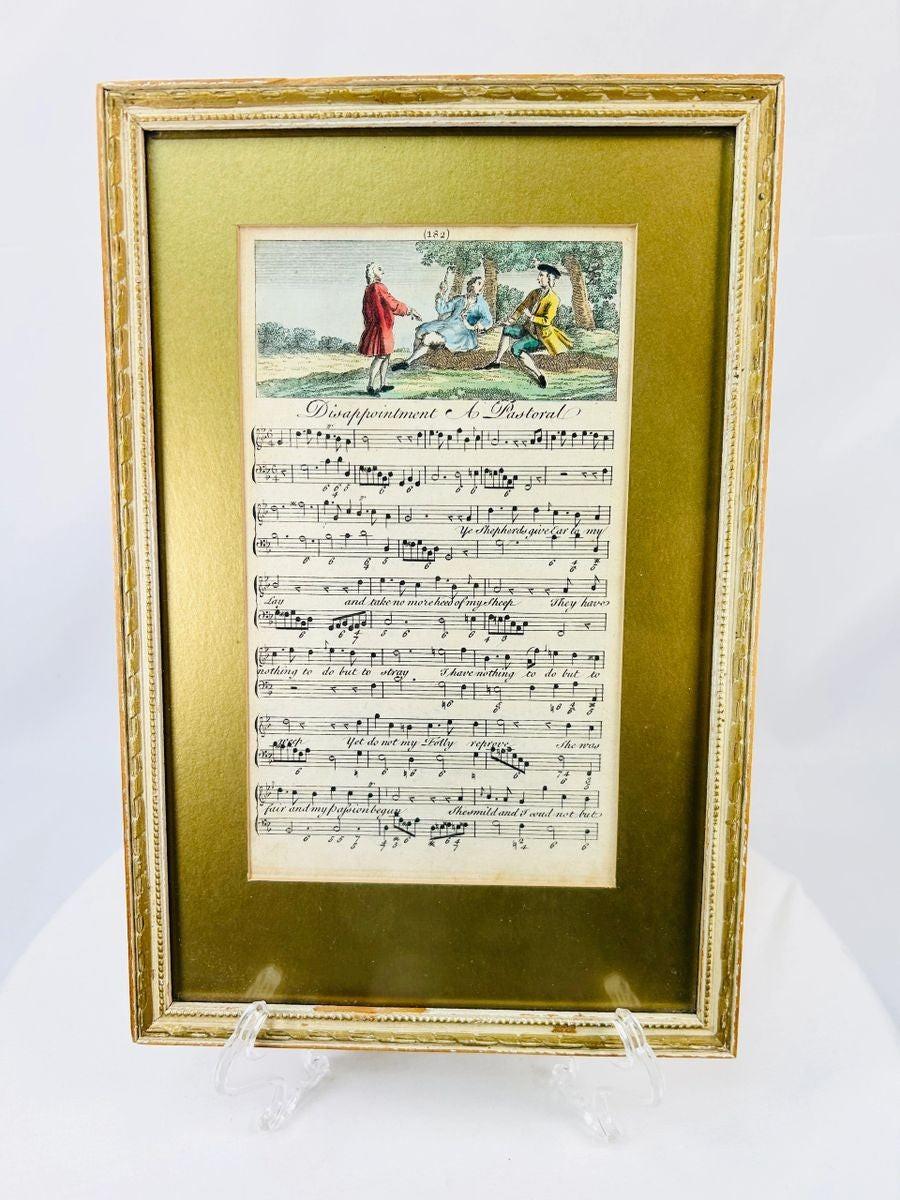 (182)
Disappointment A Pastoral
Ye Shepherds give Ear to my
Lay and take no more heed of my Sheep They have
nothing to do but to stray I have nothing to do but to
weep Yet do not my Folly reprove She was
fair and my passion begun She smil'd and I coud not but